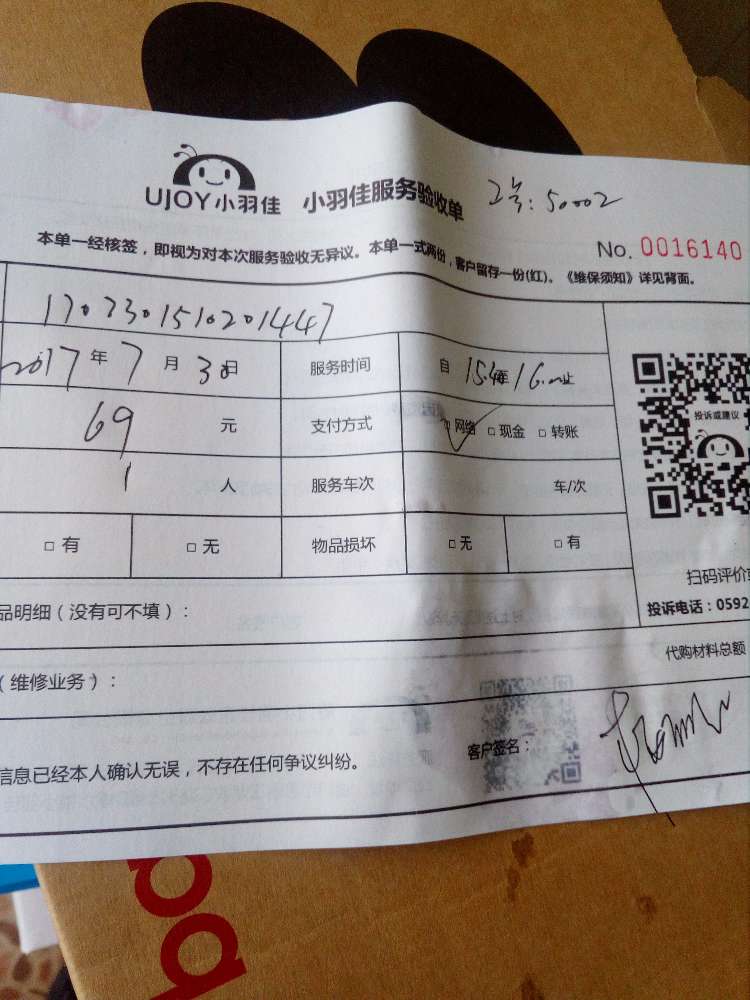 UJOY小羽佳 小羽佳服务验收单 工号:50002
No. 0016140
本单一经核签,即视为对本次服务验收无异议。本单一式两份,客户留存一份(红)。《维保须知》详见背面。
1707301510201447
2017年7月30日 服务时间 自
69 元 支付方式 网络 □ 现金 □ 转账
投诉或建议
1 人 服务车次 车/次
□ 有 □ 无 物品损坏 □ 无 □ 有
扫码评价
投诉电话:0592
品明细(没有可不填):
代购材料总额
(维修业务):
客户签名:
信息已经本人确认无误,不存在任何争议纠纷。